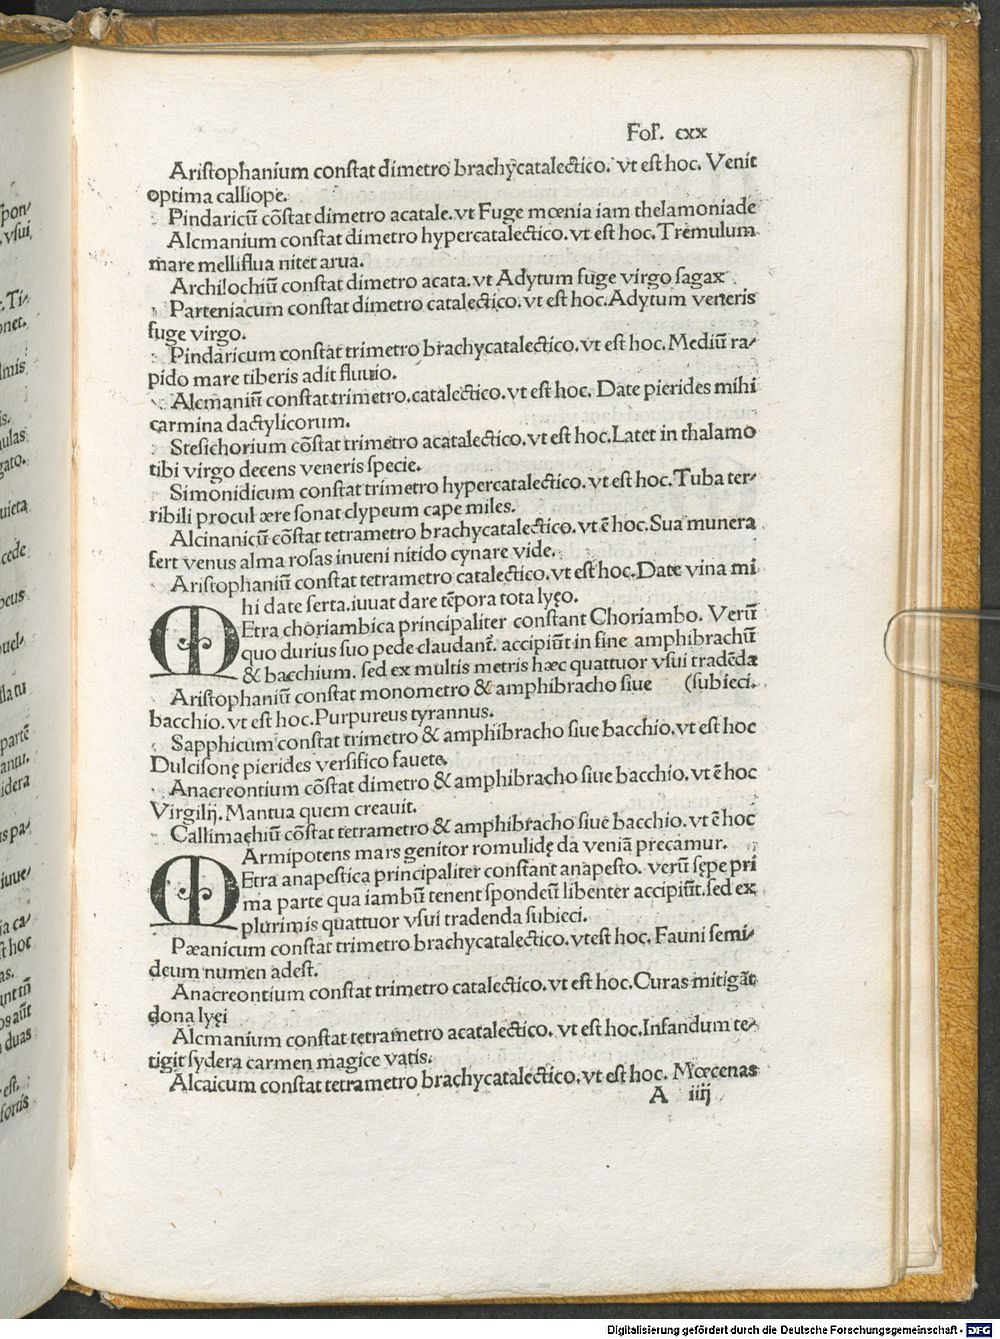 Fol. cxx
Aristophanium constat dimetro brachycatalectico. vt est hoc. Venit
optima calliope.
Pindaricũ cõstat dimetro acatale. vt Fuge mœnia iam thelamoniade
Alcmanium constat dimetro hypercatalectico. vt est hoc. Tremulum
mare melliflua nitet arua.
Archilochiũ constat dimetro acata. vt Adytum fuge virgo sagax
Parteniacum constat dimetro catalectico. vt est hoc. Adytum veneris
fuge virgo.
Pindaricum constat trimetro brachycatalectico. vt est hoc. Mediũ ra-
pido mare tiberis adit fluuio.
Alcmaniũ constat trimetro. catalectico. vt est hoc. Date pierides mihi
carmina dactylicorum.
Stesichorium cõstat trimetro acatalectico. vt est hoc. Latet in thalamo
tibi virgo decens veneris specie.
Simonidicum constat trimetro hypercatalectico. vt est hoc. Tuba ter-
ribili procul ære sonat clypeum cape miles.
Alcinanicũ cõstat tetrametro brachycatalectico. vt ẽ hoc. Sua munera
fert venus alma rosas inueni nitido cynare vide.
Aristophaniũ constat tetrametro catalectico. vt est hoc. Date vina mi
hi date serta. iuuat dare tẽpora tota lyęo.
MEtra choriambica principaliter constant Choriambo. Verũ
quo durius suo pede claudant̃. accipiũt in fine amphibrachũ
& bacchium. sed ex multis metris hæc quattuor vsui tradẽda
Aristophaniũ constat monometro & amphibracho siue (subieci.
bacchio. vt est hoc. Purpureus tyrannus.
Sapphicum constat trimetro & amphibracho siue bacchio. vt est hoc
Dulcisonę pierides versifico fauete.
Anacreontium cõstat dimetro & amphibracho siue bacchio. vt ẽ hoc
Virgilij. Mantua quem creauit.
Callimachiũ cõstat tetrametro & amphibracho siue bacchio. vt ẽ hoc
Armipotens mars genitor romulidę da veniã precamur.
MEtra anapestica principaliter constant anapesto. verũ sępe pri
ma parte qua iambũ tenent spondeũ libenter accipiũt. sed ex
plurimis quattuor vsui tradenda subieci.
Pæanicum constat trimetro brachycatalectico. vt est hoc. Fauni semi-
deum numen adest.
Anacreontium constat trimetro catalectico. vt est hoc. Curas mitigãt
dona lyęi
Alcmanium constat tetrametro acatalectico. vt est hoc. Infandum te-
tigit sydera carmen magice vatis.
Alcaicum constat tetrametro brachycatalectico. vt est hoc. Mœcenas
A iiij
Digitalisierung gefördert durch die Deutsche Forschungsgemeinschaft - DFG